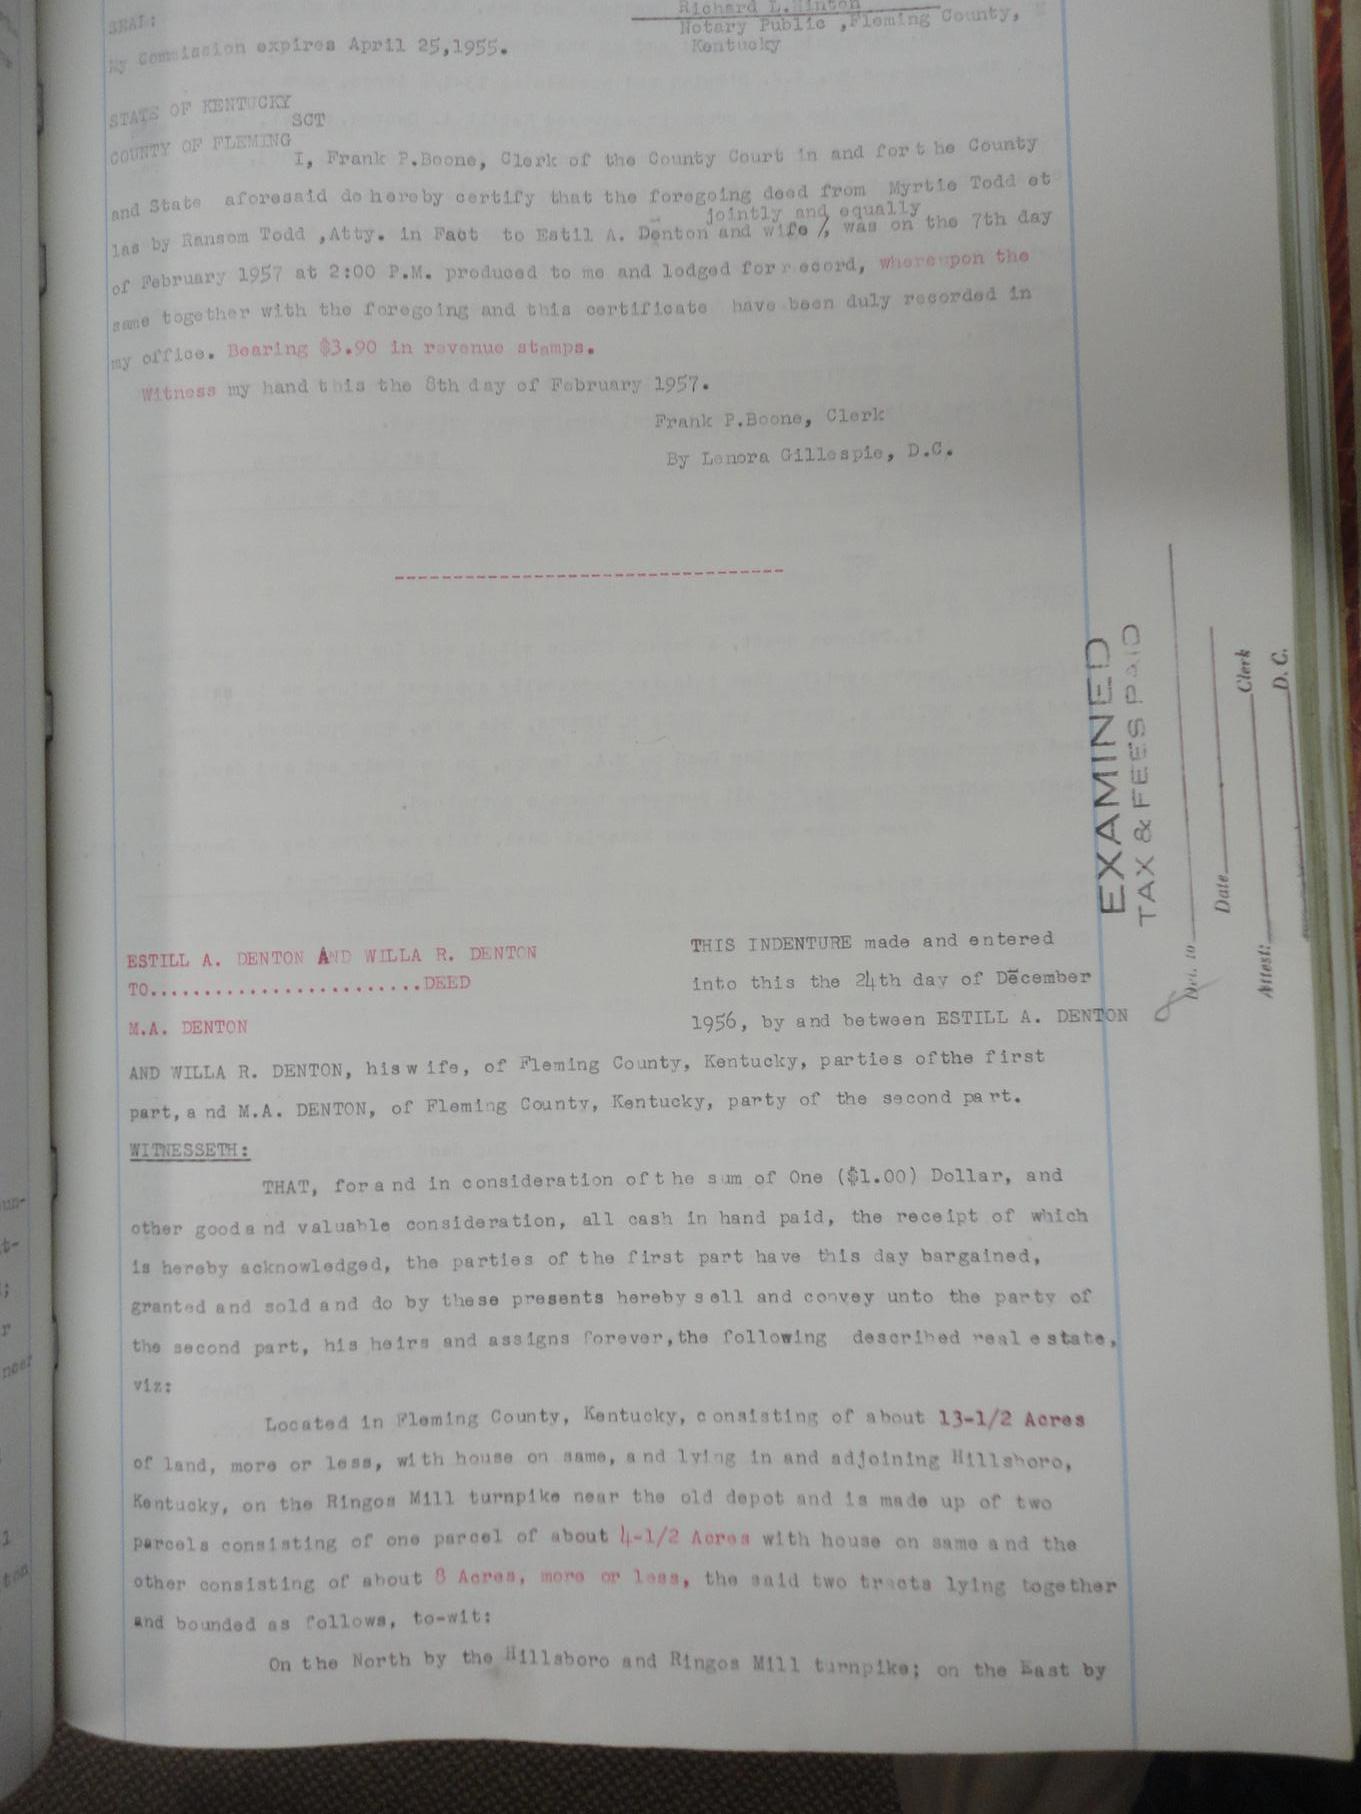 SEAL:
Richard L. Hinton
Notary Public ,Fleming County,
My Commission expires April 25,1955.
Kentucky
STATE OF KENTUCKY
SCT
COUNTY OF FLEMING
I, Frank P.Boone, Clerk of the County Court in and for t he County
and State aforesaid do hereby certify that the foregoing deed from Myrtie Todd et
jointly and equally
las by Ransom Todd ,Atty. in Fact to Estil A. Denton and wife /, was on the 7th day
of February 1957 at 2:00 P.M. produced to me and lodged for r ecord, whereupon the
same together with the foregoing and this certificate have been duly recorded in
my office. Bearing $3.90 in revenue stamps.
Witness my hand this the 8th day of February 1957.
Frank P.Boone, Clerk
By Lenora Gillespie, D.C.
------------------------------
EXAMINED
TAX & FEES PAID
Del. to
Date
Clerk
Attest:
D. C.
ESTILL A. DENTON AND WILLA R. DENTON
TO.........................DEED
M.A. DENTON
THIS INDENTURE made and entered
into this the 24th day of December
1956, by and between ESTILL A. DENTON
AND WILLA R. DENTON, his w ife, of Fleming County, Kentucky, parties ofthe first
part, a nd M.A. DENTON, of Fleming County, Kentucky, party of the second pa rt.
WITNESSETH:
THAT, for a nd in consideration of t he sum of One ($1.00) Dollar, and
other good a nd valuable consideration, all cash in hand paid, the receipt of which
is hereby acknowledged, the parties of the first part have this day bargained,
granted and sold and do by these presents hereby s ell and convey unto the party of
the second part, his heirs and assigns forever, the following described real e state,
viz:
Located in Fleming County, Kentucky, c onsisting of about 13-1/2 Acres
of land, more or less, with house on same, and lying in and adjoining Hillsboro,
Kentucky, on the Ringos Mill turnpike near the old depot and is made up of two
parcels consisting of one parcel of about 4-1/2 Acres with house on same a nd the
other consisting of about 8 Acres, more or less, the said two tracts lying together
and bounded as follows, to-wit:
On the North by the Hillsboro and Ringos Mill turnpike; on the East by